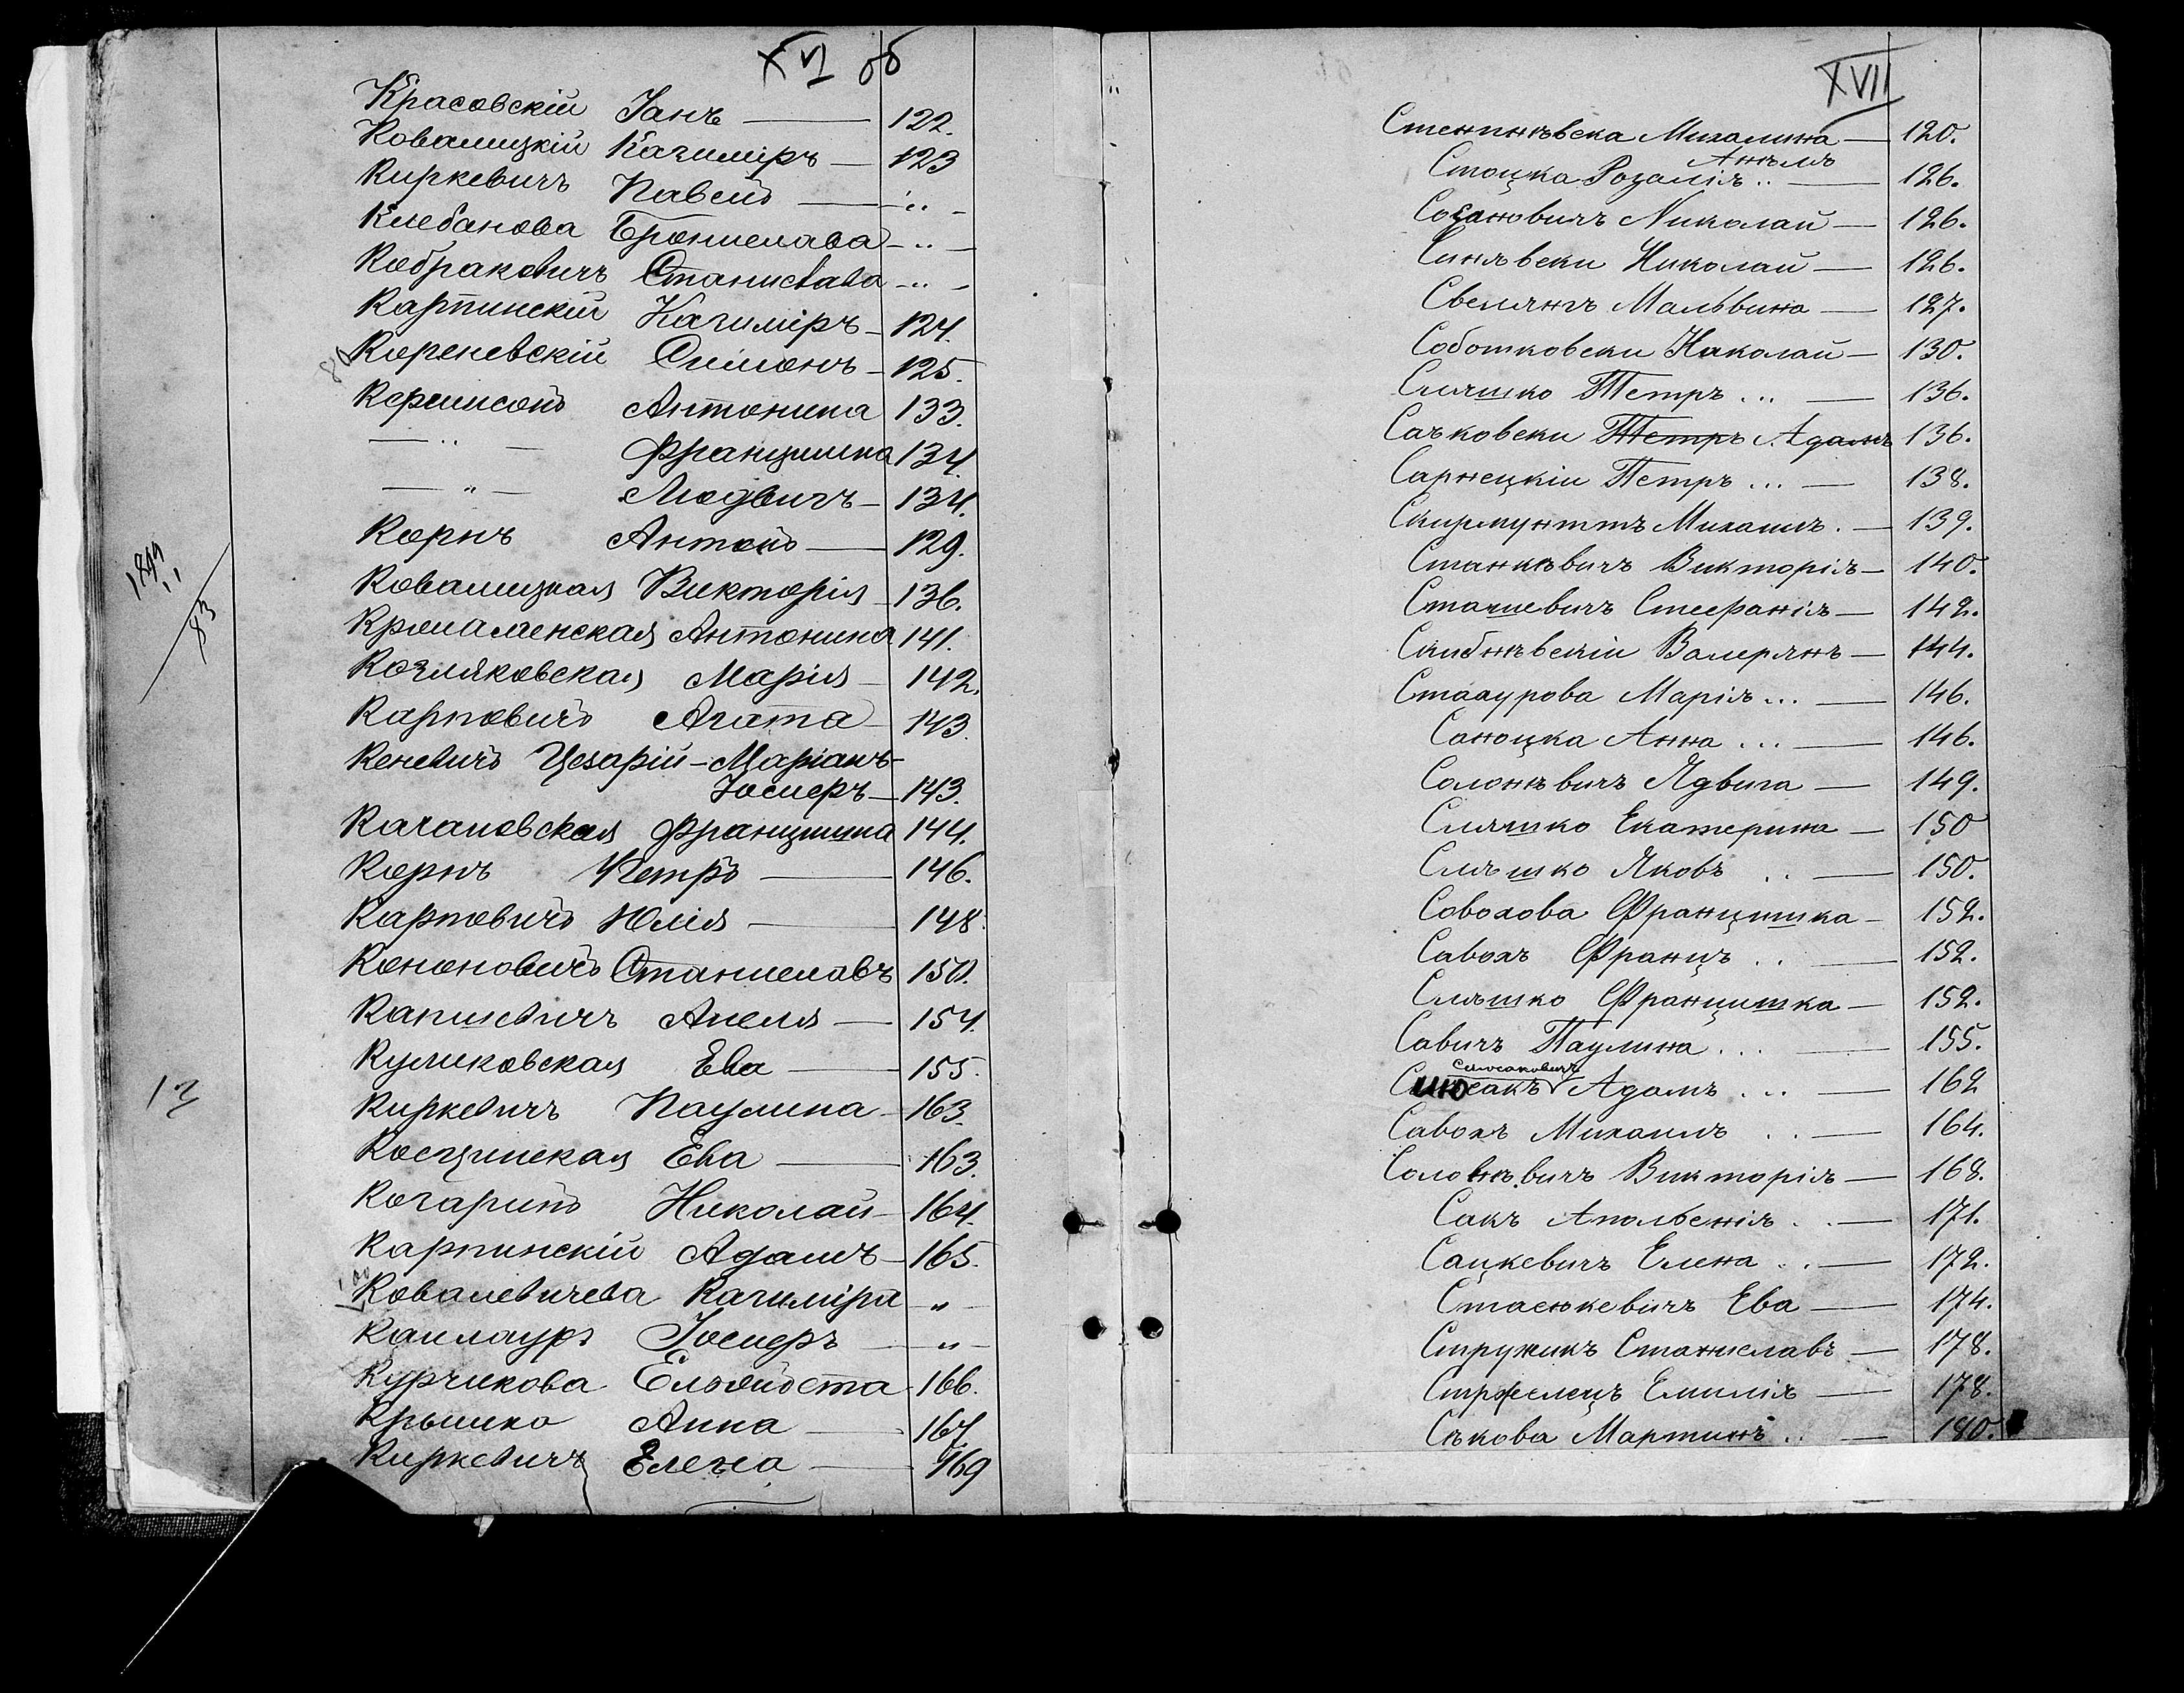 XVI об
Красовскій Іанъ — 122.
Ковалицкій Казиміръ — 123
Киркевичъ Павелъ — " —
Клебанова Брониславa — " —
Кобраковичъ Станислава — " —
Карпинскій Казиміръ — 124.
Кореневскій Симонъ — 125.
Антонина 133.
— " — Францишка 134.
— " — Людвигъ — 134.
Корнъ Антонъ — 129.
Ковалицкая Викторія — 136.
Антонина 141.
Козляковская Марія — 142.
Карповичъ Агата — 143.
Кеневичъ Цезарій-Маріанъ-
Іосифъ — 143.
Качановская Францишка 144.
Корнъ Петръ — 146.
Карповичъ Юлія — 148.
Кононовичъ Станиславъ 150.
Капшевичъ Анеля — 154.
Куликовская Ева — 155.
Киркевичъ Паулина — 163.
Косцинская Ева — 163.
Кочаринъ Николай — 164.
Карпинскій Адамъ — 165.
Ковалевичева Казиміра — " —
Іосифъ — " —
Курчикова Ельжбета 166.
Крышко Анна — 167.
Киркевичъ Елена — 169
1899
83
13
XVII
Михалина — 120.
Анѣля
Стоцка Розалія .. — 126.
Николай — 126.
Синявски Николай — 126.
Мальвина — 127.
Соботковски Николай — 130.
Сляшко Петръ ... — 136.
Сачковски Петръ Адамъ 136.
Сарнецкій Петръ ... — 138.
Скирмунттъ Михаилъ . — 139.
Станкѣвичъ Викторія — 140.
Сташевичъ Стефанія — 142.
Скибнѣвскій Валерянъ — 144.
Марія ... — 146.
Саноцка Анна ... — 146.
Солонѣвичъ Ядвига — 149.
Сляшко Екатерина — 150
Сляшко Яковъ .. — 150.
Соволова Францишка — 152.
Францъ .. — 152.
Сляшко Францишка — 152.
Савичъ Паулина ... — 155.
Адамъ ... — 162
Михаилъ .. — 164.
Солонѣвичъ Викторія — 168.
Сакъ Апольонія .. — 171.
Сацкевичъ Елена .. — 172.
Стасюкевичъ Ева — 174.
Стружикъ Станиславъ — 178.
Стржелецъ Емилія — 178.
Сѣкова Мартинъ .. — 180.